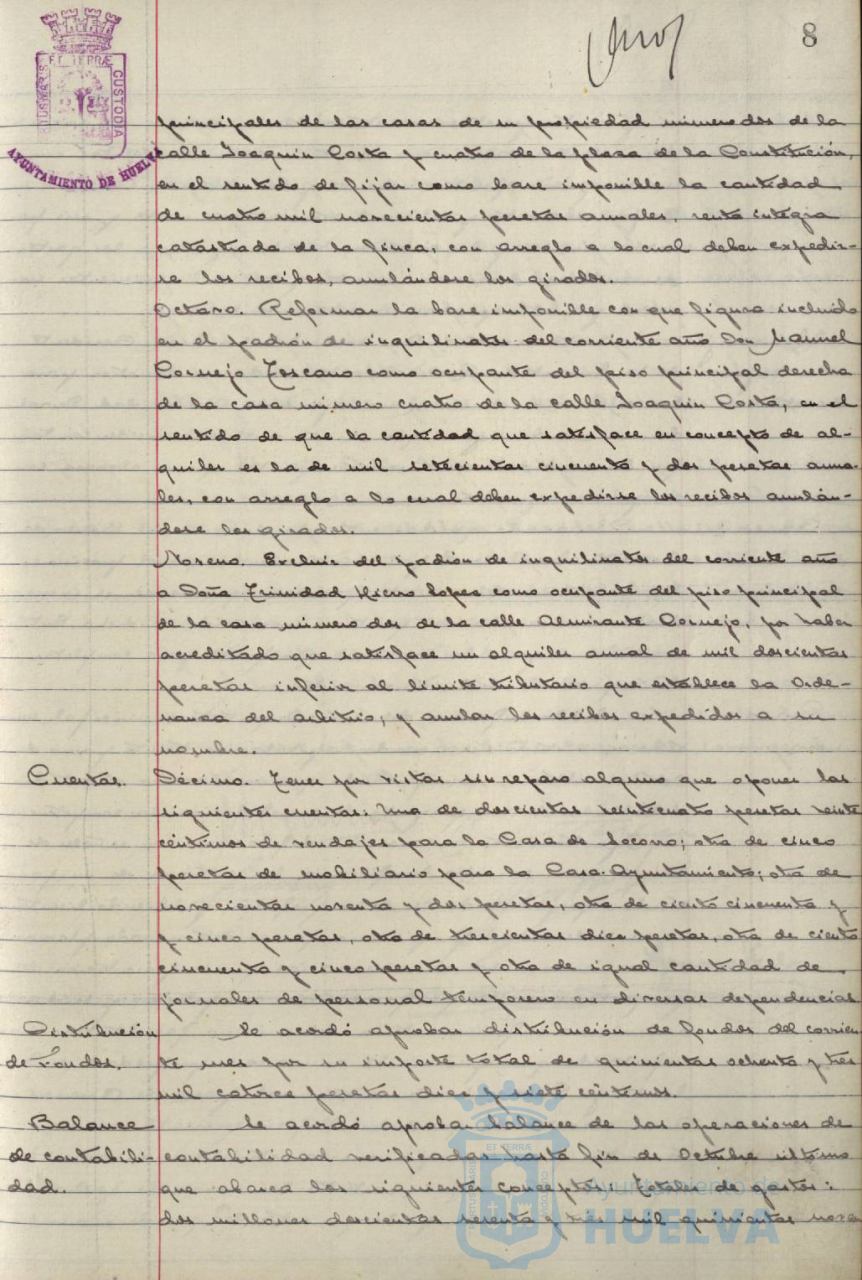 8
PORTUS MARIS ET TERRÆ CUSTODIA
AYUNTAMIENTO DE HUELVA
principales de las casas de su propiedad número dos de la
calle Joaquín Costa y cuatro de la plaza de la Constitución,
en el sentido de fijar como base imponible la cantidad
de cuatro mil novecientas pesetas anuales, renta íntegra
catastrada de la finca, con arreglo a lo cual deben expedir-
se los recibos, anulándose los girados.
Octavo. Reformar la base imponible con que figura incluido
en el padrón de inquilinatos del corriente año Don Manuel
Cornejo Toscano como ocupante del piso principal derecha
de la casa número cuatro de la calle Joaquín Costa, en el
sentido de que la cantidad que satisface en concepto de al-
quiler es la de mil setecientas cincuenta y dos pesetas anua-
les, con arreglo a lo cual deben expedirse los recibos anulán-
dose los girados.
Noveno. Excluir del padrón de inquilinatos del corriente año
a Doña Trinidad Hierro Lopez como ocupante del piso principal
de la casa número dos de la calle Almirante Cornejo, por haber
acreditado que satisface un alquiler anual de mil doscientas
pesetas inferior al límite tributario que establece la Orde-
nanza del arbitrio, y anular los recibos expedidos a su
nombre.
Cuentas. Décimo. Tener por vistas sin reparo alguno que oponer las
siguientes cuentas: Una de doscientas veinticuatro pesetas veinte
céntimos de vendajes para la Casa de Socorro; otra de cinco
pesetas de mobiliario para la Casa-Ayuntamiento; otra de
novecientas noventa y dos pesetas, otra de ciento cincuenta y
y cinco pesetas, otra de trescientas diez pesetas, otra de ciento
cincuenta y cinco pesetas y otra de igual cantidad de
jornales de personal temporero en diversas dependencias
Distribución Se acordó aprobar distribución de fondos del corrien-
de Fondos. te mes por su importe total de quinientas ochenta y tres
mil catorce pesetas diez y siete céntimos.
Balance Se acordó aprobar balance de las operaciones de
de contabili- contabilidad verificadas hasta fin de Octubre último
dad. que abarca los siguientes conceptos: Totales de gastos:
dos millones doscientas sesenta y tres mil quinientas nove
Ayuntamiento de
HUELVA